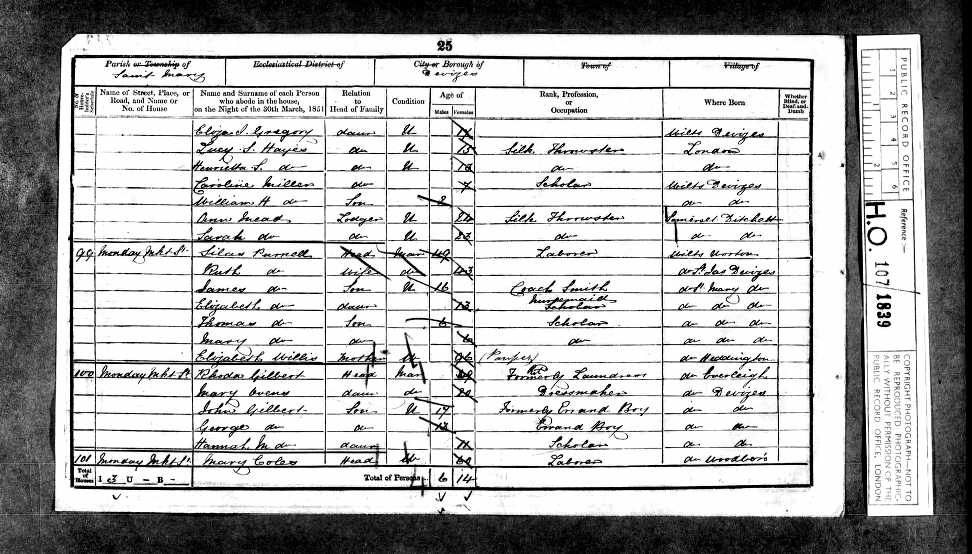 25
Parish or Township of Saint Mary Ecclesiastical District of City or Borough of Devizes Town of Village of
Name of Street, Place, or Road, and Name or No. of House Name and Surname of each Person who abode in the house, on the Night of the 30th March, 1851 Relation to Head of Family Condition Age of Males Females Rank, Profession, or Occupation Where Born Whether Blind, or Deaf-and-Dumb
Eliza J. Gregory daur U Wilts Devizes
Lucy S. Hayes do U 15 Silk Throwster London
Henrietta S. do do U do do
Caroline Miller do 7 Scholar Wilts Devizes
William H do Son 2 do do
Ann Mead Lodger U Silk Throwster Somerset Ditcheatt
Sarah do do U do do do
99 Monday Mkt St. Silas Purnell Head Mar 49 Laborer Wilts Worton
Ruth do Wife do 43 do St Jas Devizes
James do Son U 16 Coach Smith do St Mary do
Elizabeth do daur 13 Nursemaid Scholar do do do
Thomas do Son 6 Scholar do do do
Mary do do do do do do
Elizabeth Willis Mother (Pauper) do Heddington
100 Monday Mkt St Rhoda Gilbert Head Mar Formerly Laundress do Everleigh
Mary Ovens daur do 20 Dressmaker do Devizes
John Gilbert Son U 17 Formerly Errand Boy do do
George do do 13 Errand Boy do do
Hannah M do daur 11 Scholar do do
101 Monday Mkt St. Mary Coles Head 60 Laborer do Woodboro
Total of Houses I 3 U – B – Total of Persons 6 14
PUBLIC RECORD OFFICE
1 2 3 4 5 6
1 2
Reference :-
H.O. 107/1839
COPYRIGHT PHOTOGRAPH—NOT TO BE REPRODUCED PHOTOGRAPHICALLY WITHOUT PERMISSION OF THE PUBLIC RECORD OFFICE, LONDON